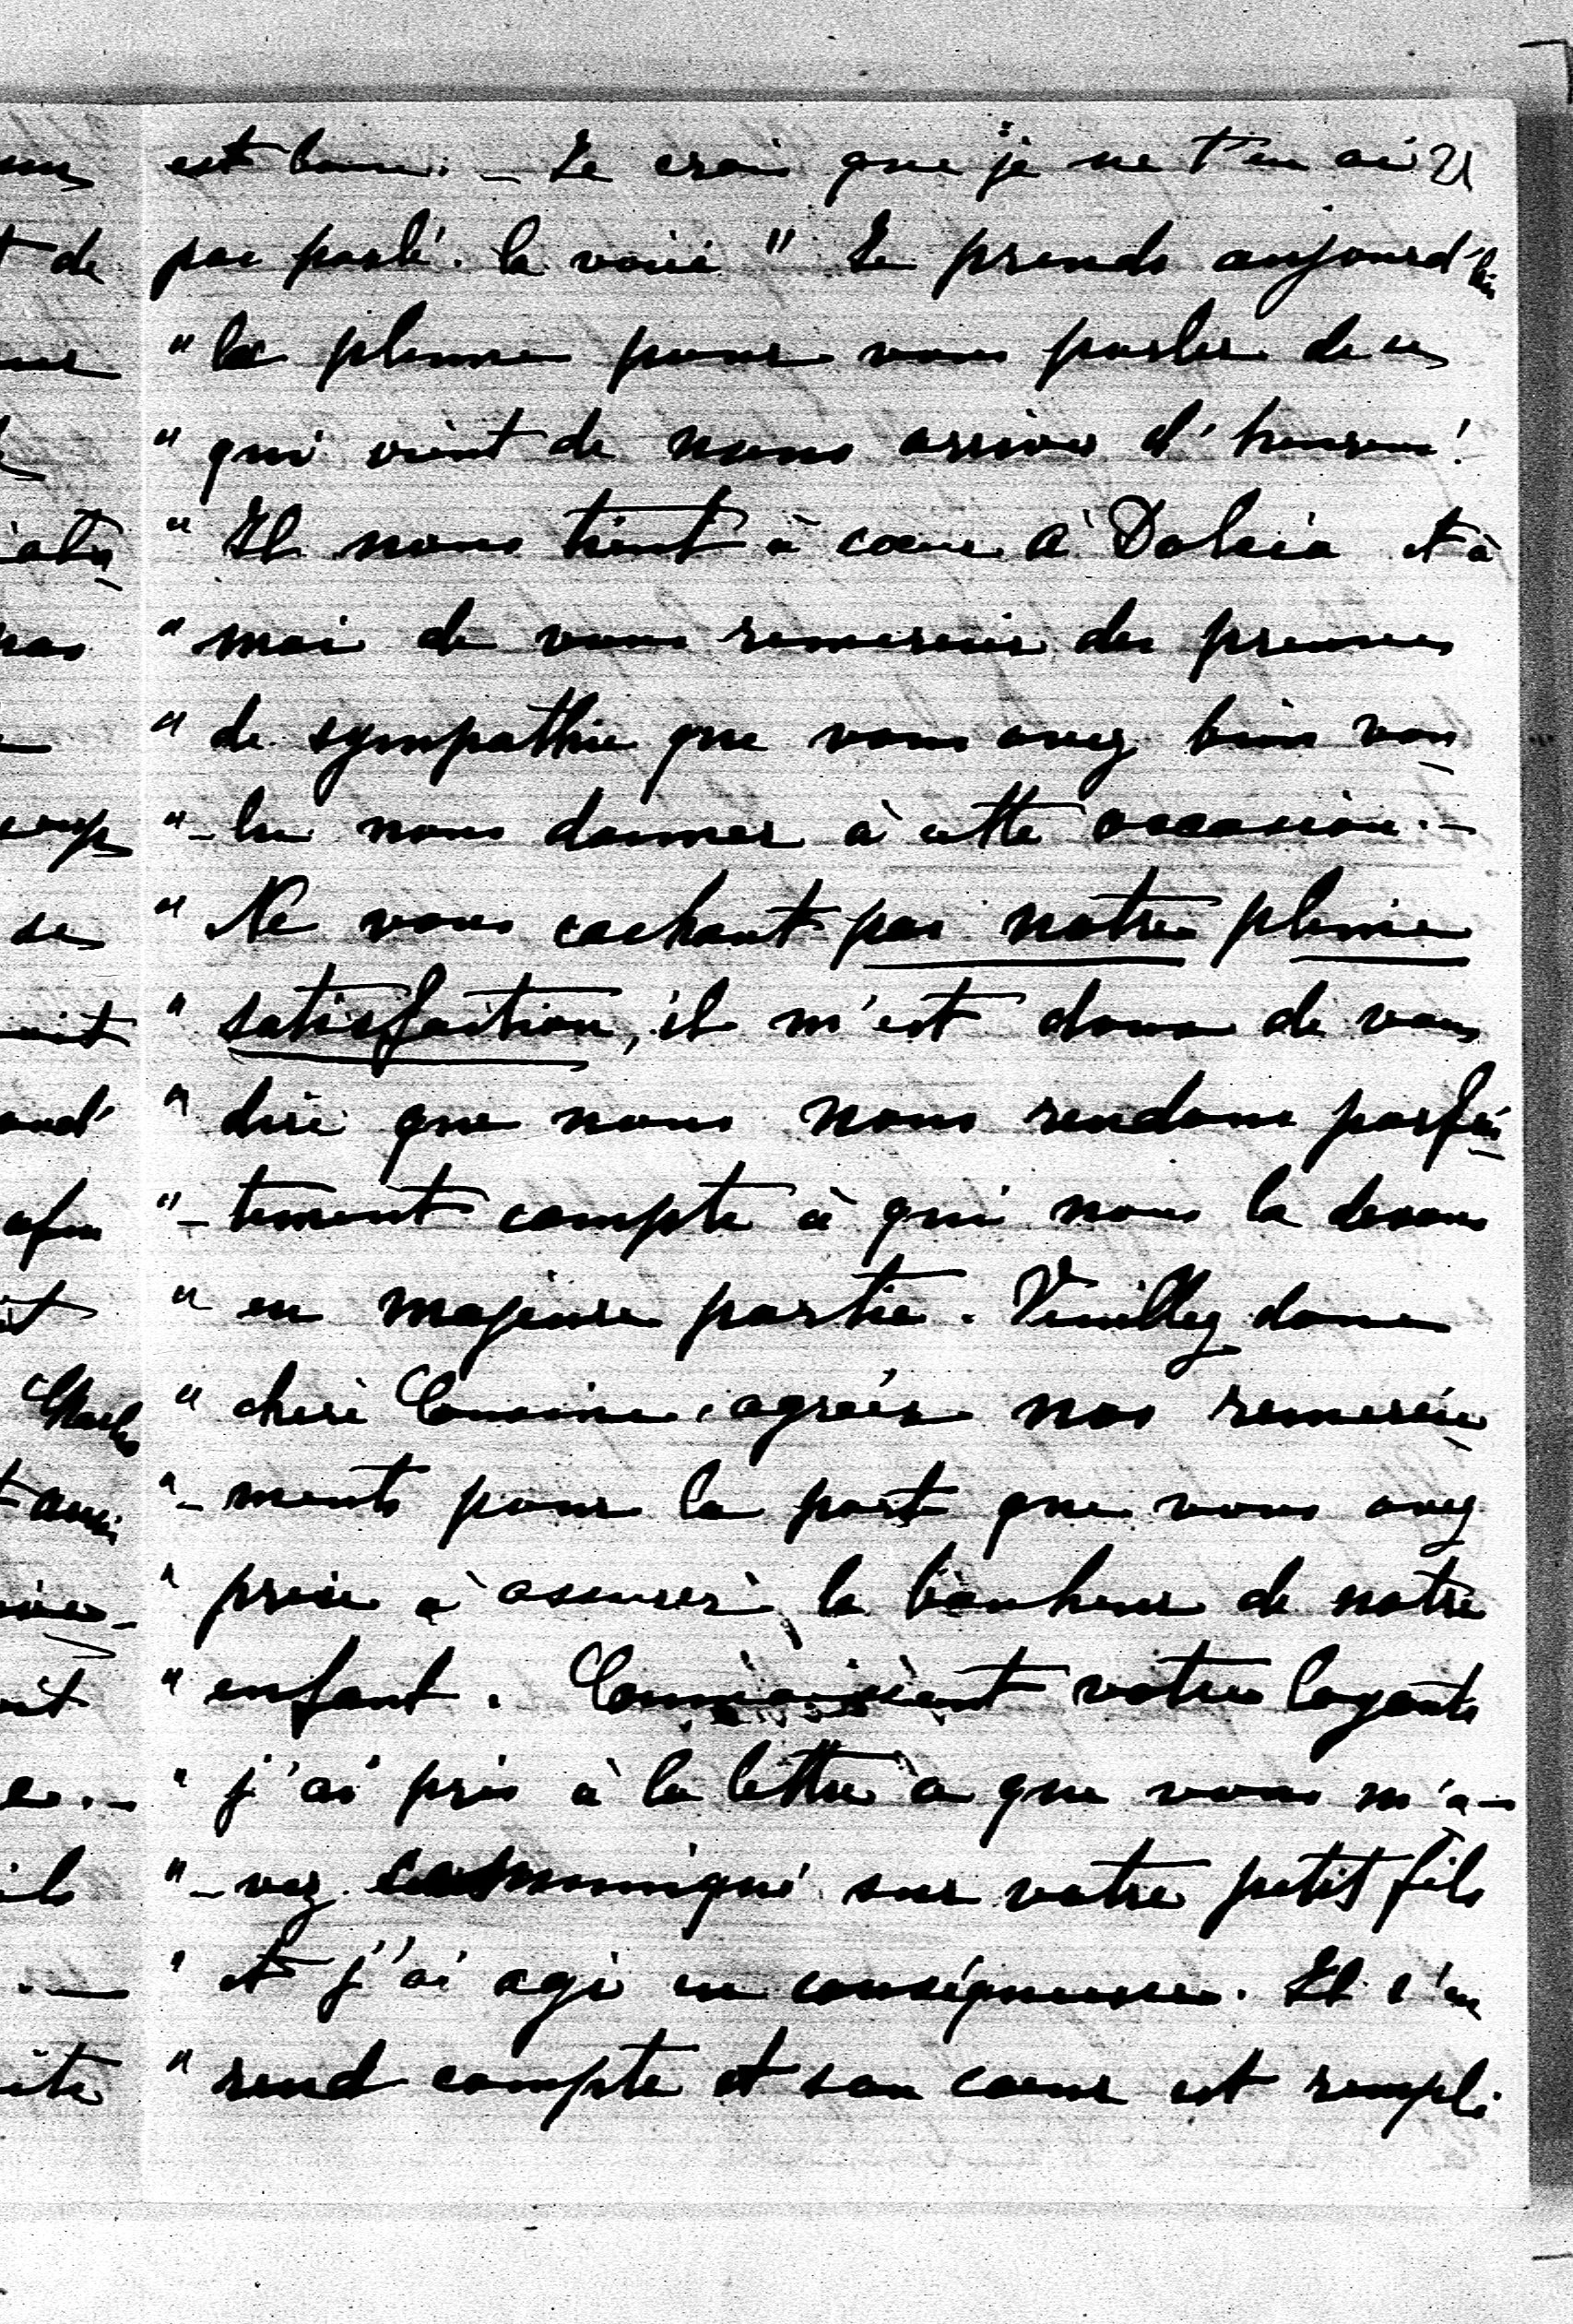 est bonne. _ Je crois que je ne t'en ai 21
pas parlé. la voici " Je prends aujourd'hui
" la plume pour vous parler de ce
" qui vient de nous arriver d'heureux!
" Il nous tient à cœur à Dolcia et à
" moi de vous remercier des preuves
" de sympathie que vous avez bien vou
" _ lu nous donner à cette occasion. _
" Ne vous cachant pas notre pleine
" satisfaction, il m'est doux de vous
" dire que nous nous rendons parfai
" _ tement compte à qui nous la devons
" en majeure partie. Veuillez donc
" chère Cousine, agréer nos remercie
" _ ments pour la part que vous avez
" prise à assurer le bonheur de notre
" enfant. Connaissant votre loyauté
" j'ai pris à la lettre ce que vous m'a _
" _ vez communiqué sur votre petit fils
" et j'ai agi en conséquence. Il s'en
" rend compte et son cœur est rempli